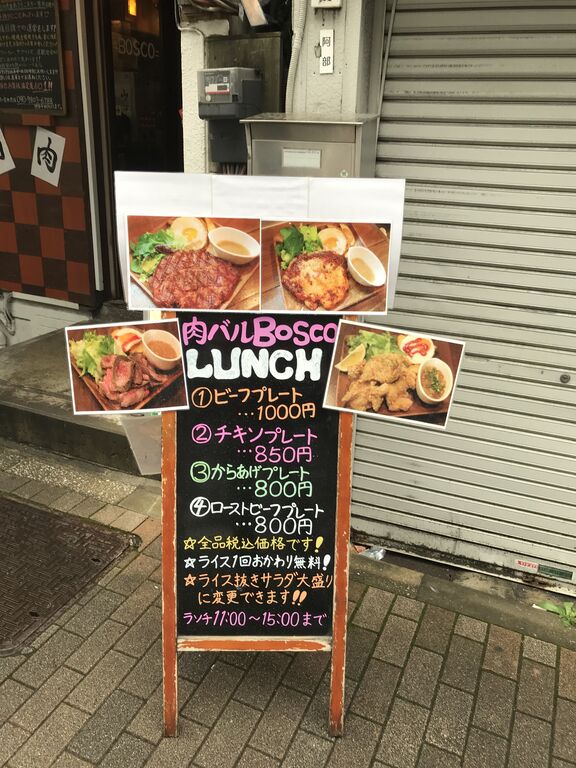 BOSCO
阿部
肉
肉バルBOSCO
LUNCH
①ビーフプレート
…1000円
②チキンプレート
…850円
③からあげプレート
…800円
④ローストビーフプレート
…800円
☆全品税込価格です!
☆ライス1回おかわり無料!
☆ライス抜きサラダ大盛り
に変更できます!!
ランチ11:00〜15:00まで